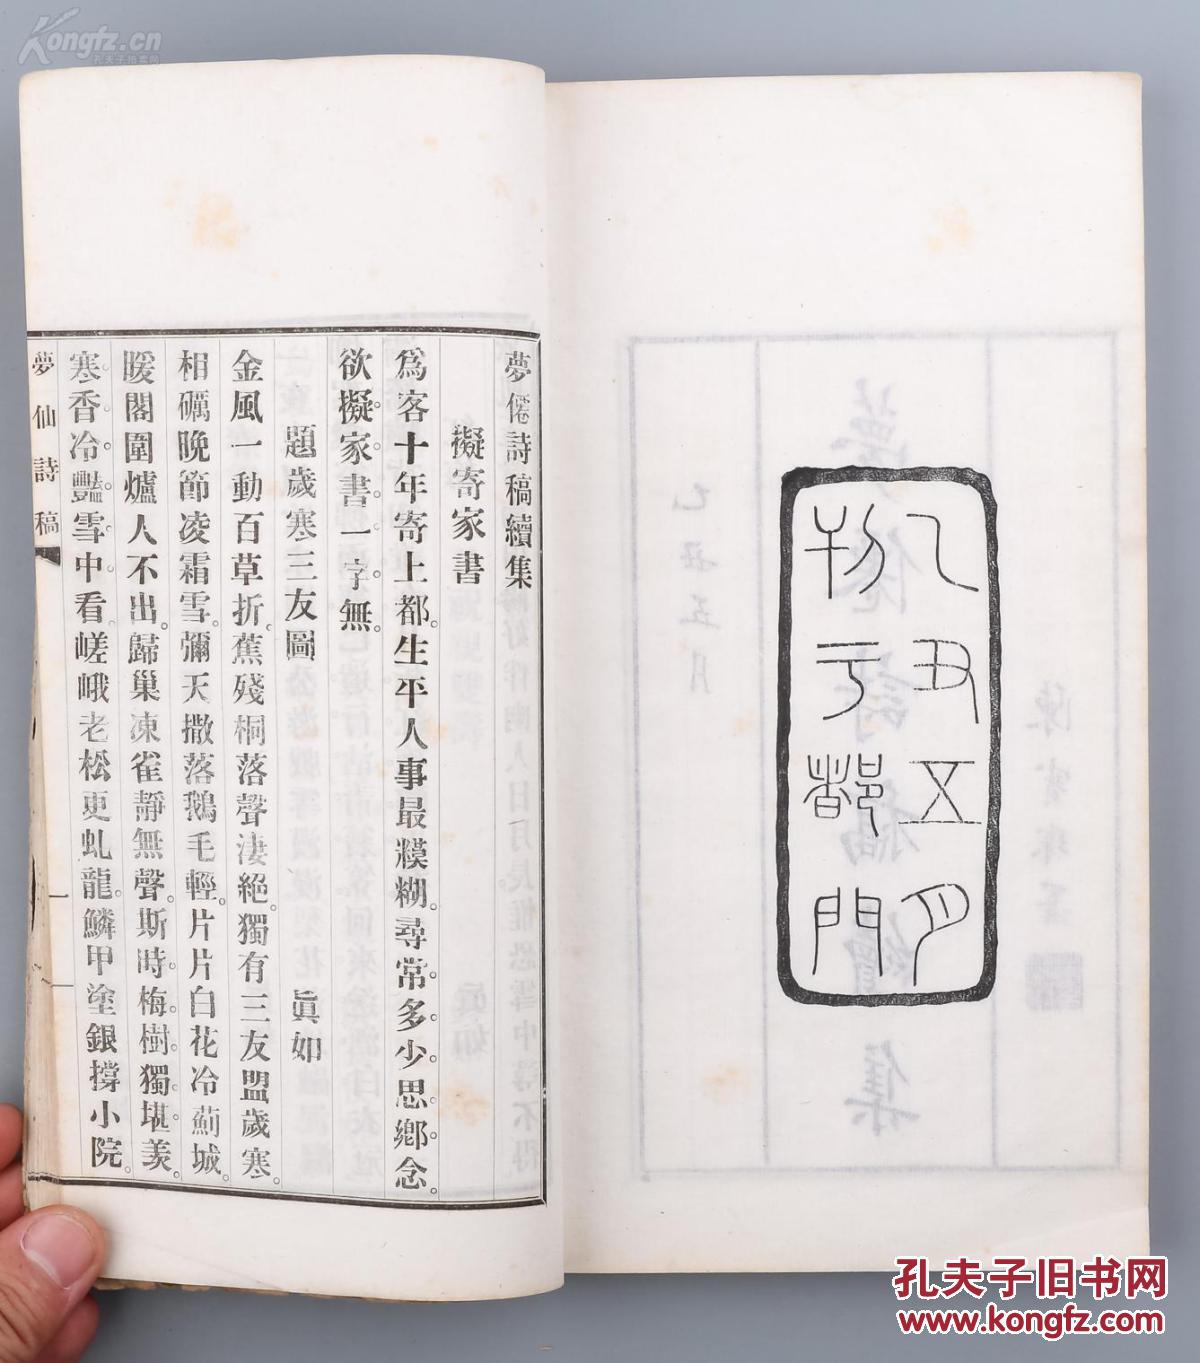 Kongfz.cn
孔夫子旧书网
乙丑五月
刊于都門
夢僊詩稿續集
擬寄家書
爲客十年寄上都。生平人事最糢糊。尋常多少思鄉念。
欲擬家書一字無。
題歲寒三友圖 眞如
金風一動百草折。蕉殘桐落聲淒絕。獨有三友盟歲寒。
相礪晚節凌霜雪。彌天撒落鵝毛輕。片片白花冷薊城。
暖閣圍爐人不出。歸巢凍雀靜無聲。斯時梅樹獨堪羨。
寒香冷豔雪中看。嵯峨老松更虬龍。鱗甲塗銀撐小院。
夢仙詩稿
一
孔夫子旧书网
www.kongfz.com